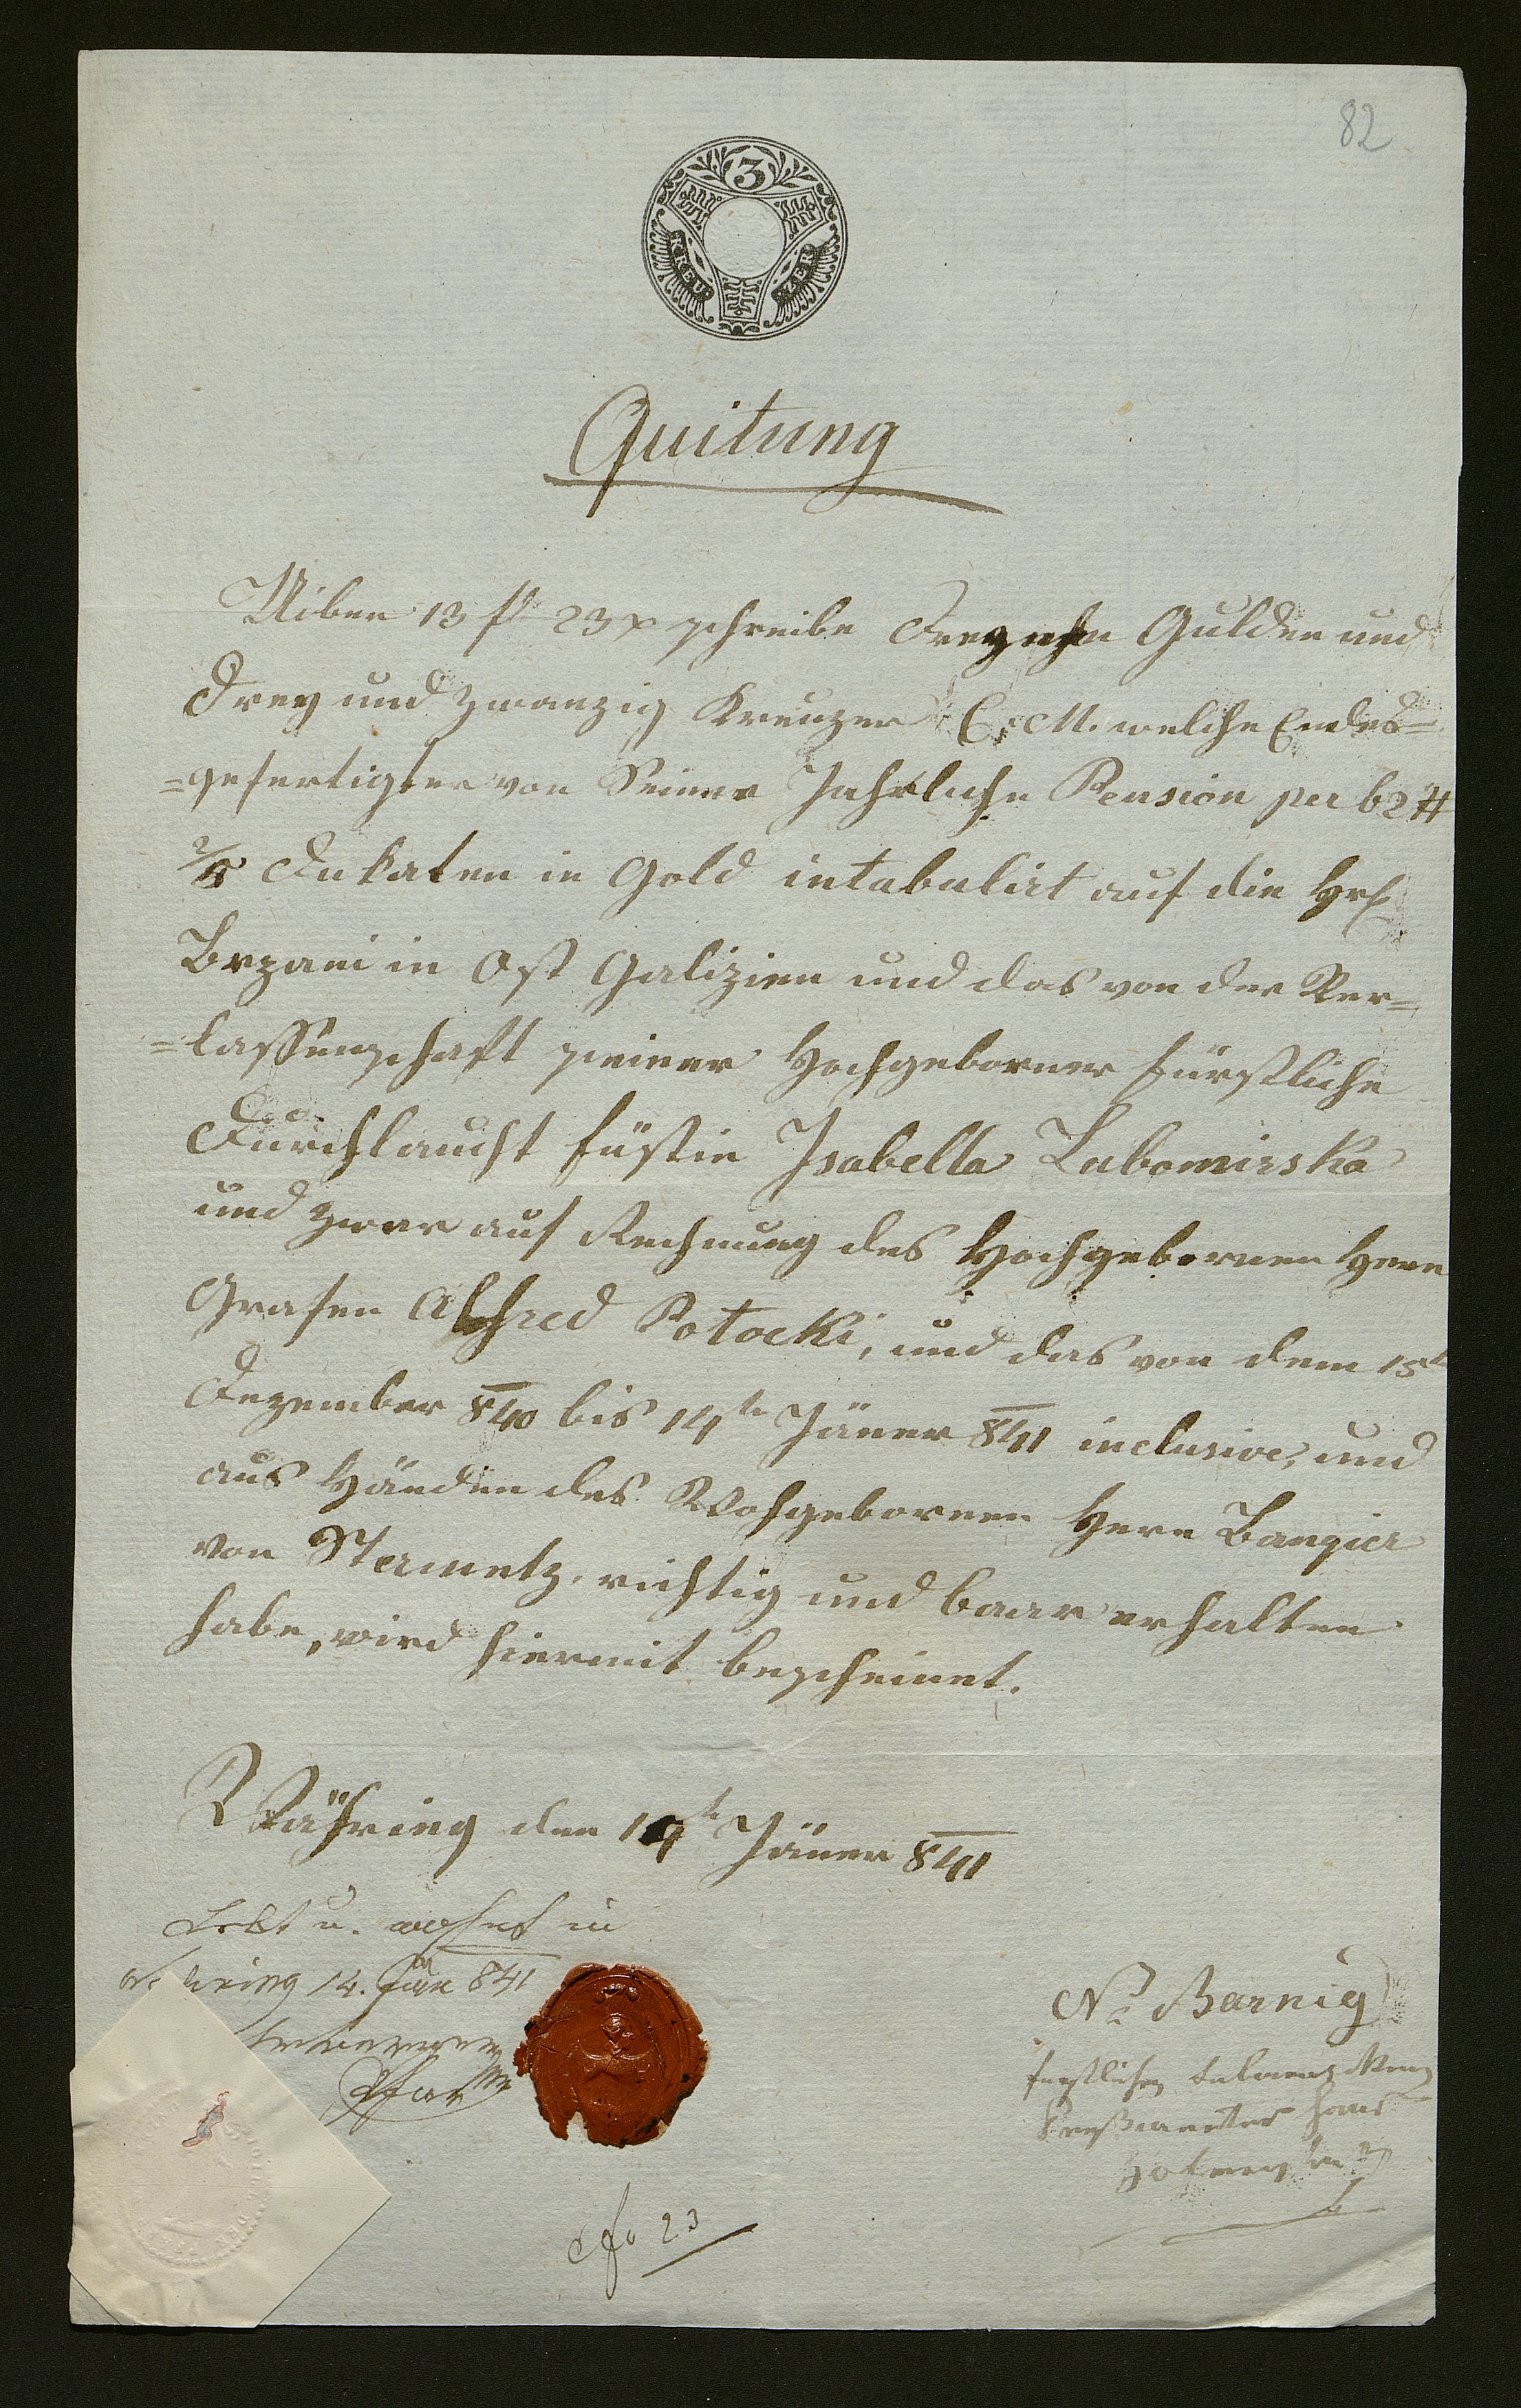 82
3
KREU ZER
Quitung
Uiber 13 fl 23 x schreibe Dreyzehn Gulden und
Drey und zwanzig Kreuzer C. M. welche Endes=
=gefertigter von Seiner Jahrliche Pension per 62 #
2/8 Dukaten in Gold intabulirt auf die Hrf
Brzani in Ost Galizien und das von der Ver=
=lassenschaft seiner Hochgeborner fürstliche
Durchlaucht füstin Isabella Lubomirska
und zwar auf Rechnung des Hochgebornen Herrn
Grafen Alfred Potocki, und das von dem 15t
Dezember 840 bis 14te Jäner 841 inclusive, und
aus Händen des Wohgebornen Hern Banzier
von Stametz, richtig und baar erhalten
habe, wird hiermit bescheinet.
Währing den 14te Jäner 841
Lebt u. wohnt in
Währing 14. Jän 841
Pfarrer
N: Barnig
furstlichen
Haus
Hofmeister
fo 23